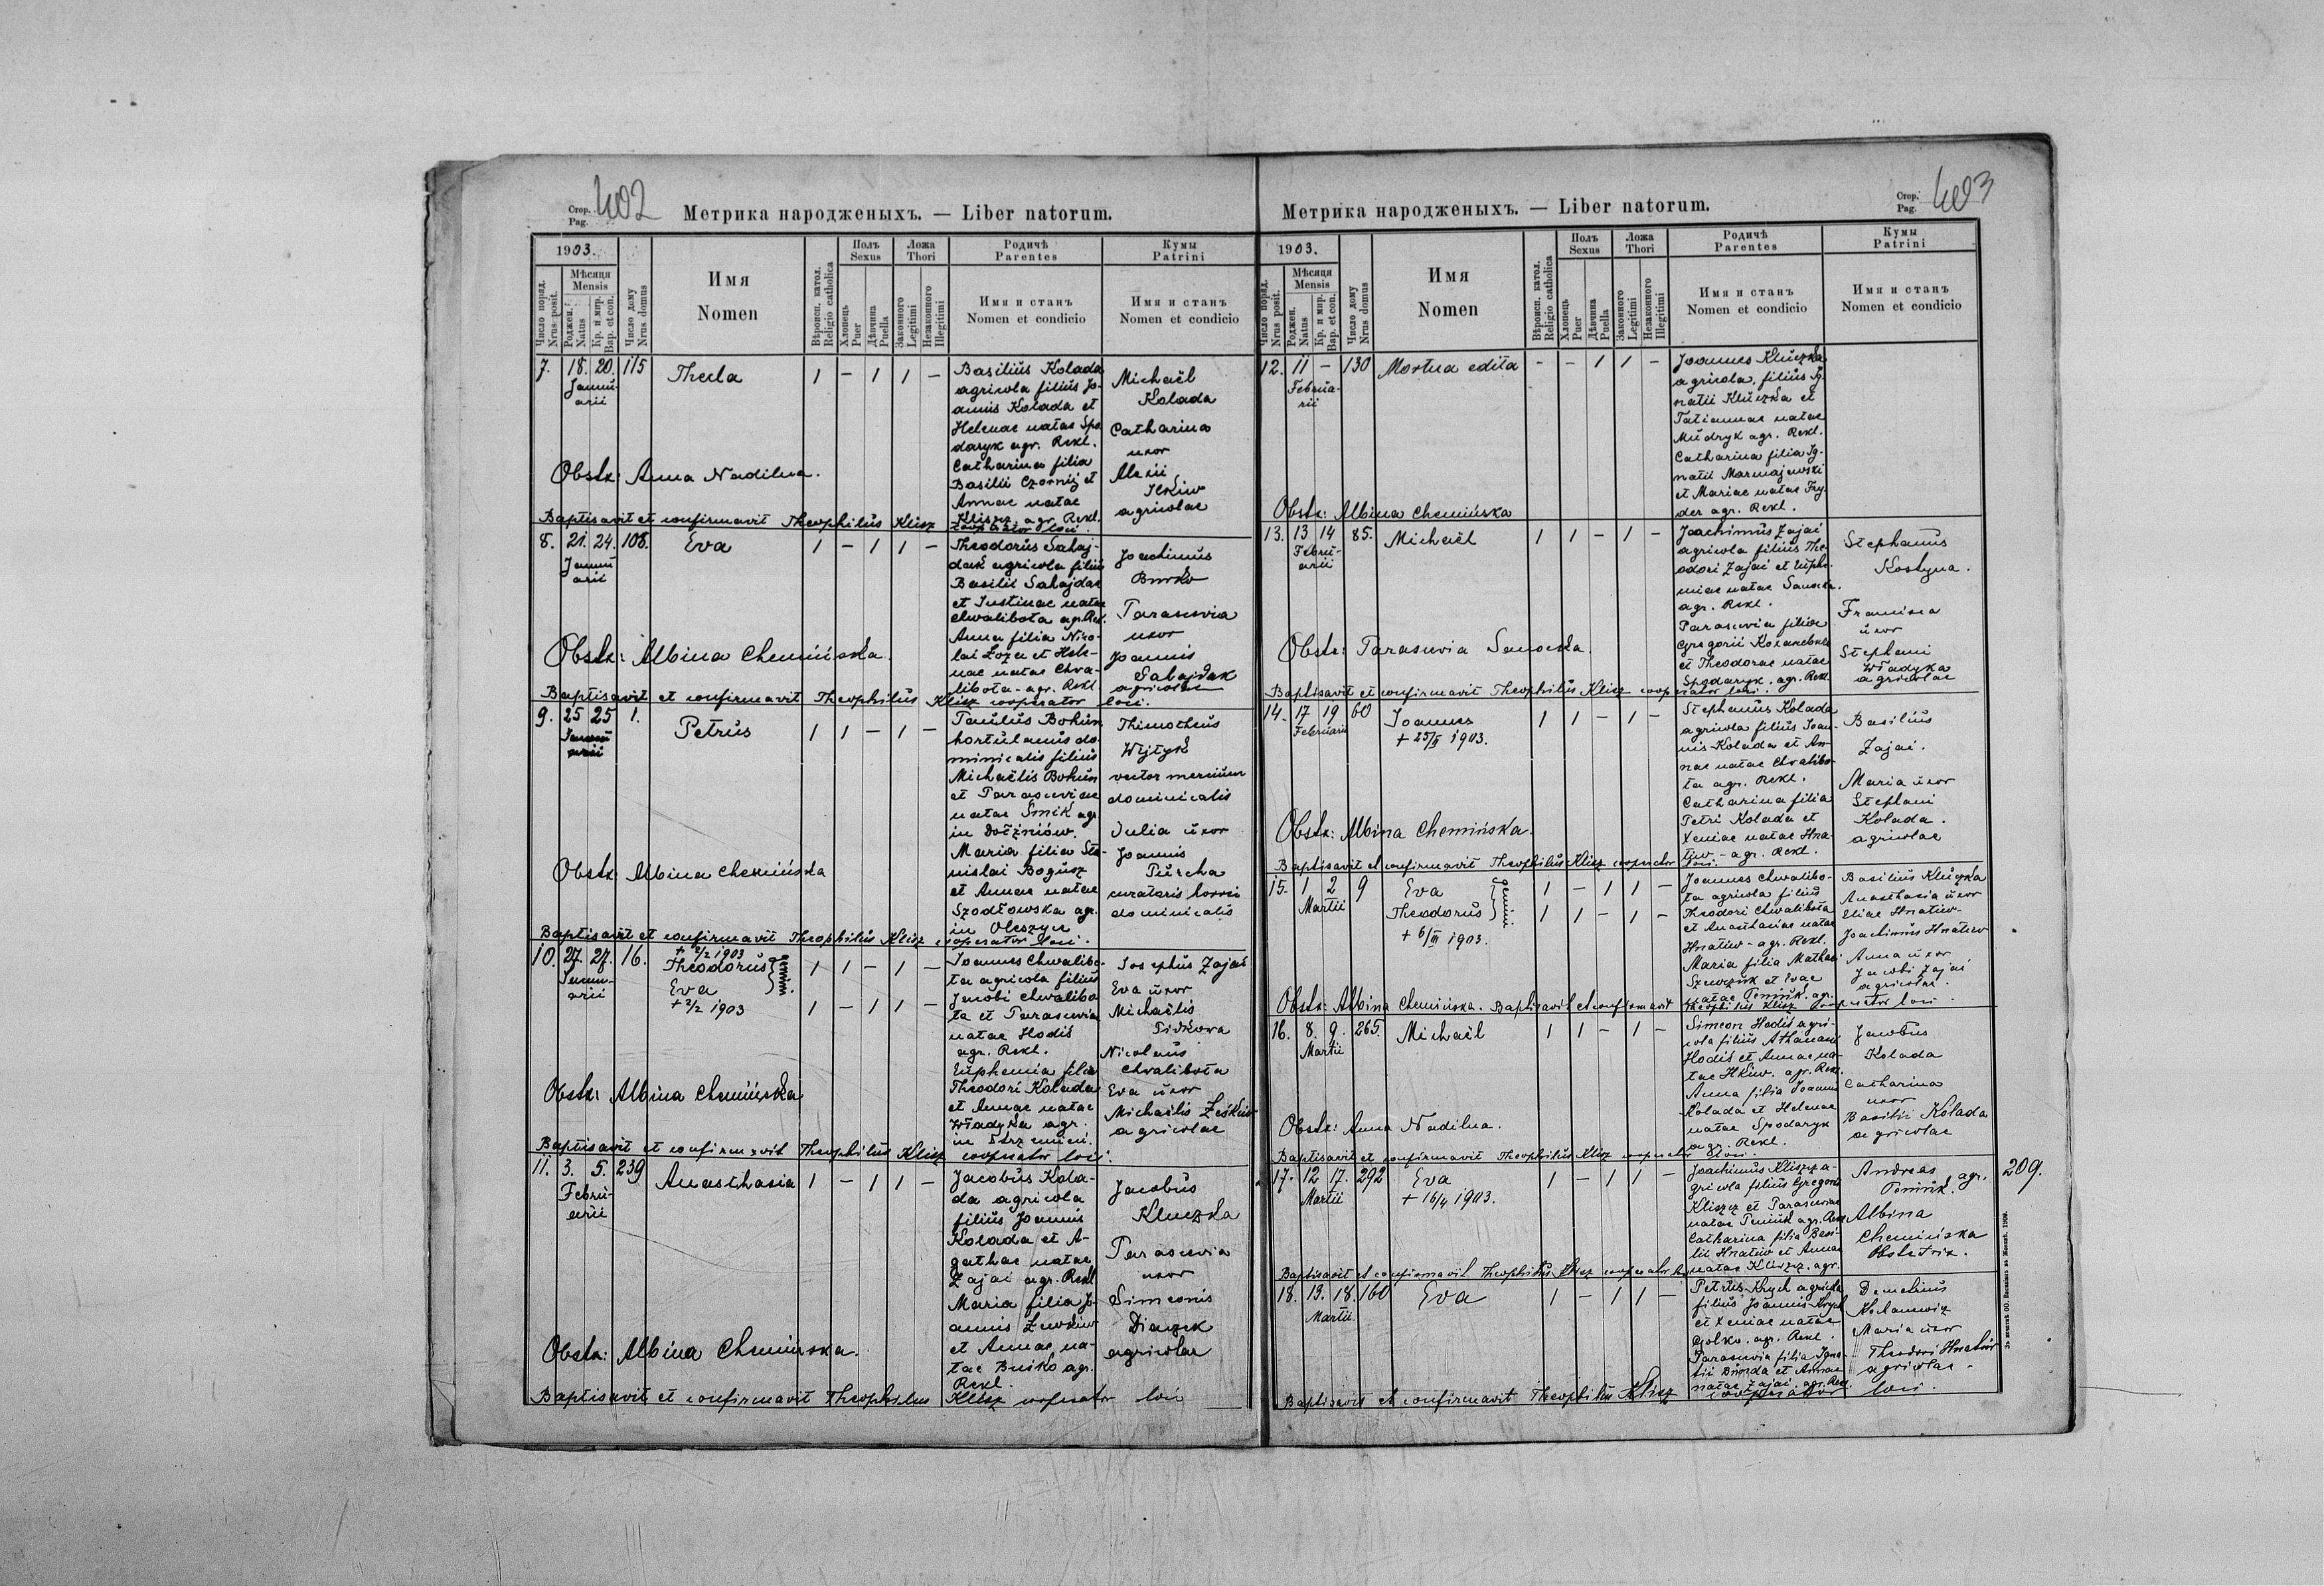 Стор. Pag. 402
Метрика народженыхъ. — Liber natorum.
1903.
Число поряд. Nrus posit.
Мѣсяця Mensis
Роджен. Natus
Кр. и мир. Bap. et con.
Число дому Nrus domus
Имя
Nomen
Вѣроисп. катол. Religio catholica
Полъ Sexus
Хлопець Puer
Дѣвчина Puella
Ложа Thori
Законного Legitimi
Незаконного Illegitimi
Родичѣ Parentes
Имя и станъ
Nomen et condicio
Кумы Patrini
Имя и станъ
Nomen et condicio
7. 18. 20. 115 Thecla 1 – 1 1 –
Januarii
Basiliŭs Kolada
agricola filiŭs Jo-
annis Kolada et
Helenae natae Spo
daryk agr. Rekl.
Catharina filia
Basilii Czornij et
Annae natae
Kliszcz agr. Rekl.
Michaël
Kolada
Catharina
uxor
Alexii
Ilkiw
agricolae
Obstr: Anna Nadilna.
Baptisavit et confirmavit Theophilŭs Klisz cooperator loci.
8. 21. 24. 108. Eva 1 – 1 1 –
Januarii
Theodorŭs Sahaj-
dak agricola filiŭs
Basilii Sahajdak
et Justinae natae
Chwalibota agr. Rekl.
Anna filia Nico-
lai Łoza et Hele-
nae natae Chva-
libota - agr. Rekl
Joachimŭs
Burko
Parascevia
uxor
Joannis
Sahajdak
agricolae
Obstr: Albina Chemińska.
Baptisavit et confirmavit Theophilŭs Klisz cooperator loci.
9. 25 25 1. Petrŭs 1 1 – 1 –
Januarii
Paulŭs Bohŭn
hortŭlanŭs do-
minicalis filiŭs
Michaëlis Bohŭn
et Parasceviae
natae Smik agr
in Dołżniów.
Maria filia Sta-
nislai Bogŭsz
et Annae natae
Szodłowska agr.
in Oleszyce
Thimotheŭs
Wijtyk
vector mercium
dominicalis
Julia ŭxor
Joannis
Pŭrcha
curatoris horrei
dominicalis
Obstr: Albina Chemińska
Baptisavit et confirmavit Theophilŭs Klisz cooperator loci.
10. 27. 27. 16. + 2/2 1903
Januarii
Theodorŭs 1 1 – 1 –
Eva 1 – 1 1 –
+ 2/2 1903
Gemini
Joannes Chwalibo-
ta agricola filiŭs
Jacobi Chwalibo
ta et Parascevia
natae Hodiś
agr. Rekl.
Eŭphemia filia
Theodori Kolada
et Annae natae
Władyka agr.
Josephŭs Zajac
Eva ŭxor
Michaëlis
Pidkowa
Nicolaŭs
Chvalibota
Eva ŭxor
Michaëlis
agricolae
Obstr: Albina Chemińska
Baptisavit et confirmavit Theophilŭs Klisz cooperator loci.
11. 3. 5. 239 Anasthasia 1 – 1 1 –
Februarii
Jacobŭs Kola-
da agricola
filiŭs Joannis
Kolada et A-
gathae natae
Zajac agr. Rekl
Maria filia Jo-
annis Lewkiw
et Annae na-
tae Bŭrko agr.
Rekl.
Jacobŭs
Kluczka
Parascevia
uxor
Simeonis
Diaczek
agricolae
Obstr: Albina Chemińska.
Baptisavit et confirmavit Theophilus Klisz cooperator loci
Стор. Pag. 403
Метрика народженыхъ. — Liber natorum.
1903.
Число поряд. Nrus posit.
Мѣсяця Mensis
Роджен. Natus
Кр. и мир. Bap. et con.
Число дому Nrus domus
Имя
Nomen
Вѣроисп. катол. Religio catholica
Полъ Sexus
Хлопець Puer
Дѣвчина Puella
Ложа Thori
Законного Legitimi
Незаконного Illegitimi
Родичѣ Parentes
Имя и станъ
Nomen et condicio
Кумы Patrini
Имя и станъ
Nomen et condicio
12. 11 – 130 Mortua edita – – 1 1 –
Februarii
Joannes Klŭczka
agricola, filiŭs Ig-
natii Klŭczka et
Tatiannae natae
Mŭdryk agr. Rekl.
Catharina filia Ig-
natii Marmajewski
et Mariae natae Fry-
der agr. Rekl.
Obstr: Albina Chemińska
13. 13 14 85. Michaël 1 1 – 1 –
Februarii
Joachimŭs Zajac
agricola filiŭs The-
odori Zajac et Eŭphe-
miae natae Sanocka.
agr. Rekl.
Parascevia filia
Gregorii Kozaneboda
et Theodorae natae
Spodaryk. agr. Rekl.
Stephanŭs
Kostyna.
Francisca
ŭxor
Stephani
Władyka
agricolae
Obstr: Parascevia Sanocka.
Baptisavit et confirmavit Theophilŭs Klisz cooperator loci.
14. 17 19 60 Joannes 1 1 – 1 –
Februarii + 25/II 1903.
Stephanŭs Kolada
agricola filiŭs Joan-
nis Kolada et An-
nae natae Chvalibo-
ta agr. Rekl.
Catharina filia
Petri Kolada et
Xeniae natae Hna-
tiw - agr. Rekl.
Basiliŭs
Zajac.
Maria ŭxor
Stephani
Kolada.
agricolae
Obstr: Albina Chemińska.
Baptisavit et confirmavit Theophilŭs Klisz cooperator loci.
15. 1 2 9 Eva 1 – 1 1 –
Martii Theodorŭs 1 1 – 1 –
+ 6/III 1903.
Gemini
Joannes Chwalibo-
ta agricola filiŭs
Theodori Chwalibota
et Anasthasiae natae
Hnatiw - agr. Rekl.
Maria filia Mathaei
Szewczŭk et Evae
natae Peniŭk. agr.
Basiliŭs Klŭczka
Anasthasia ŭxor
Eliae Hnatiw.
Joachimŭs Hnatiw
Anna ŭxor
Jacobi Zajac
agricolae.
Obstr: Albina Chemińska. Baptisavit et confirmavit Theophilŭs Klisz cooperator loci.
16. 8. 9. 265. Michaël 1 1 – 1 –
Martii
Simeon Hodiś agri-
cola filiŭs Athanasii
Hodiś et Annae na-
tae Ilkiw. agr. Rekl.
Anna filia Joannis
Kolada et Helenae
natae Spodaryk
agr. Rekl.
Jacobŭs
Kolada
Catharina
uxor
Basilii Kolada
agricolae
Obstr: Anna Nadilna.
Baptisavit et confirmavit Theophilŭs Klisz cooperator loci.
17. 12 17. 292 Eva 1 – 1 1 –
Martii + 16/4 1903.
Joachimŭs Kliszcz a-
gricola filiŭs Gregorii
Kliszcz et Parasceviae
natae Peniŭk agr. Rekl
Catharina filia Basi-
lii Hnatiw et Annae
natae Kliszcz. agr.
Andreas agr. 209.
Peniŭk.
Albina
Chemińska
Obstetrix.
Baptisavit et confirmavit Theophilŭs Klisz cooperator loci
18. 13. 18. 160 Eva 1 – 1 1 –
Martii
Petrŭs Krych agricola
filiŭs Joannis Krych
et Xeniae natae
Golko. agr. Rekl.
Parascevia filia Igna-
tii Dŭnda et Annae
natae Zajac. agr. Rekl.
Demetriŭs
Kochanowicz
Maria ŭxor
Theodori Hnatiw
agricolae.
Baptisavit et confirmavit Theophilŭs Klisz cooperator loci.